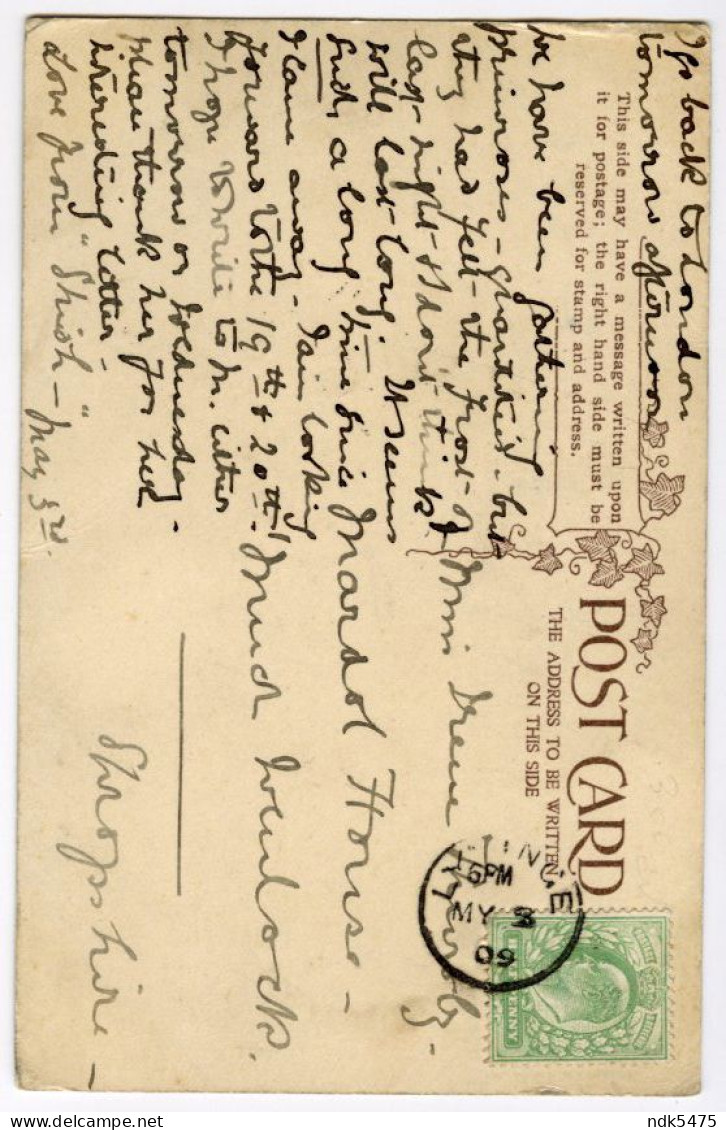 I go back to London
tomorrow afternoon
This side may have a message written upon
it for postage; the right hand side must be
reserved for stamp and address.
We have been gathering
primroses - quantities, but
they had felt the frost of
last night & I don't think
will last long. It seems
such a long time since
I came away - I am looking
forward to the 19th & 20th!
I hope to write to M. either
tomorrow or Wednesday.
Please thank her for her
interesting letter -
Love from "
" - May 3rd.
POST CARD
THE ADDRESS TO BE WRITTEN
ON THIS SIDE
Miss Irene
Mardol House -
Much Wenlock.
Shropshire -
6 PM
MY 3
09
PENNY
ndk5475